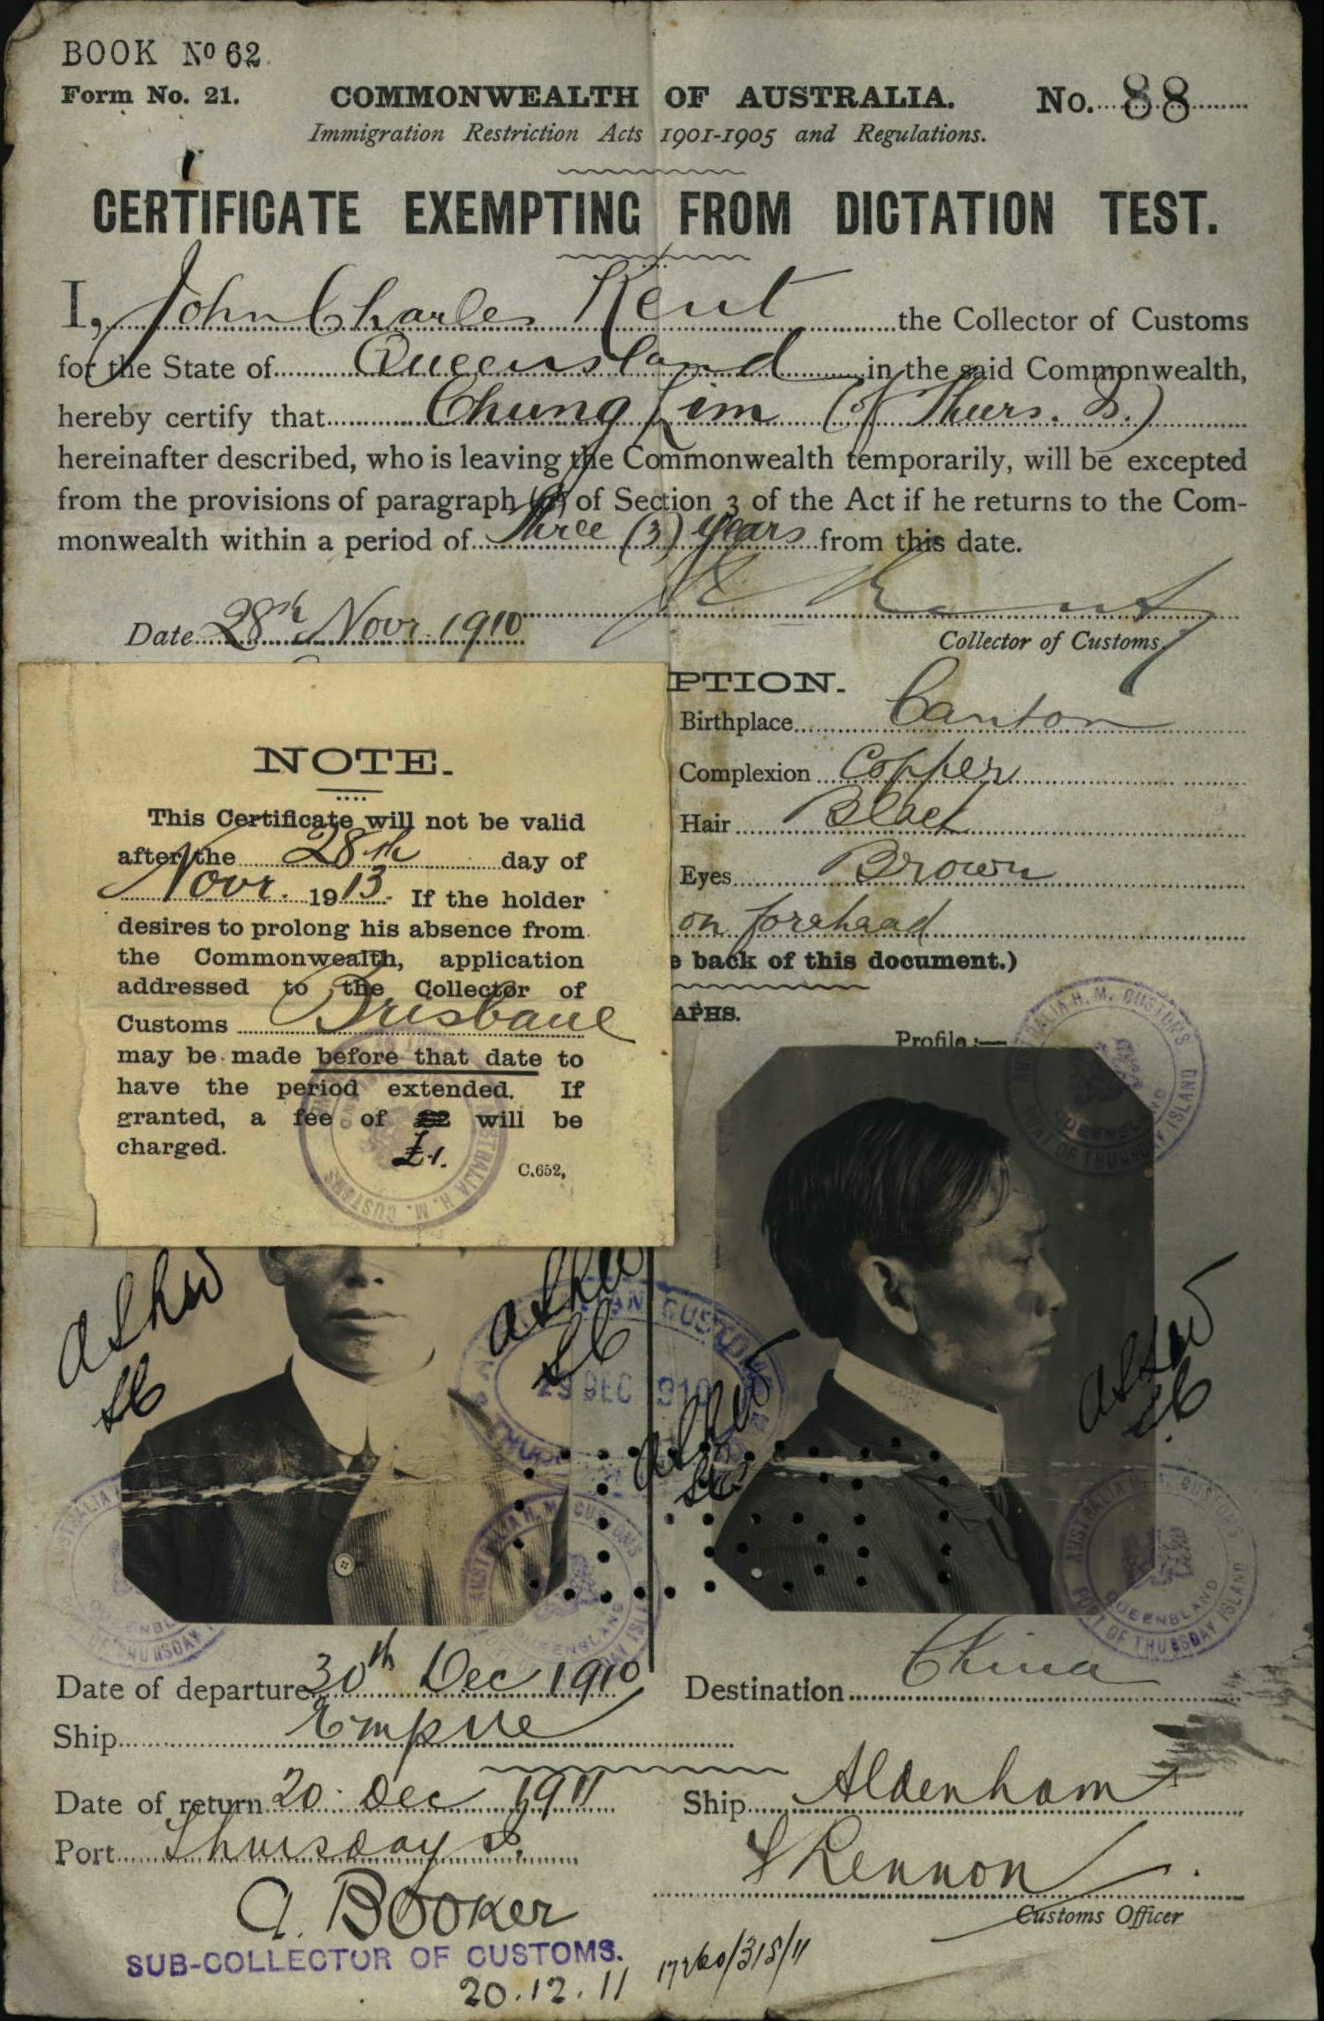 BOOK Nº 62.
Form No. 21. COMMONWEALTH OF AUSTRALIA. No. 88
Immigration Restriction Acts 1901-1905 and Regulations.
CERTIFICATE EXEMPTING FROM DICTATION TEST.
I, John Charles Kent the Collector of Customs
for the State of Queensland in the said Commonwealth,
hereby certify that Chung Lim (of Thurs. Is.)
hereinafter described, who is leaving the Commonwealth temporarily, will be excepted
from the provisions of paragraph (a) of Section 3 of the Act if he returns to the Com-
monwealth within a period of Three (3) years from this date.
Date 28th Novr 1910
Collector of Customs.
PTION.
Birthplace Canton
Complexion Copper
Hair Black
Eyes Brown
on forehead
e back of this document.)
APHS.
Profile:—
NOTE.
This Certificate will not be valid
after the 28th day of
Novr. 1913. If the holder
desires to prolong his absence from
the Commonwealth, application
addressed to the Collector of
Customs Brisbane
may be made before that date to
have the period extended. If
granted, a fee of £2 will be
charged. £1.
C.652,
AUSTRALIA H. M. CUSTOMS
QUEENSLAND
PORT OF THURSDAY ISLAND
CUSTOMS
29 DEC 1910
Date of departure 30th Dec 1910 Destination China
Ship Empire
Date of return 20 Dec 1911 Ship Aldenham
Port Thursday Is.
Customs Officer
A. Booker
SUB-COLLECTOR OF CUSTOMS.
20.12.11